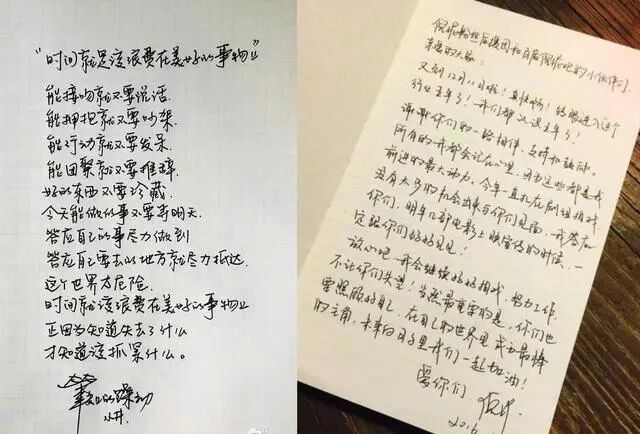 “时间就是该浪费在美好的事物上”
能接吻就不要说话
能拥抱就不要吵架
能行动就不要发呆
能团聚就不要推辞
好的东西不要珍藏
今天能做的事不要等明天
答应自己的事尽力做到
答应自己要去的地方就尽力抵达
这个世界太危险
时间就该浪费在美好的事物上
正因为知道失去了什么
才知道该抓紧什么。
的躁动
小井
倪妮粉丝后援团和百度倪妮吧的小伙伴们
亲爱的大家:
又到12月11日啦!真快啊!转眼进入这个
行业五年了!我们都认识五年了!
谢谢你们的一路相伴、支持和鼓励。
所有的我都会记在心里。因为这些都是我
前进的最大动力。今年一直扎在剧组拍戏
没有太多的机会出来与你们见面。我答应
你们,明年几部电影上映宣传的时候,一
定跟你们好好见见!
放心吧,我会继续好好拍戏,努力工作,
不让你们失望!当然最重要的是,你们也
要照顾好自己,在自己的世界里成为最棒
的主角,未来的日子里我们一起加油!
爱你们 倪妮
2016